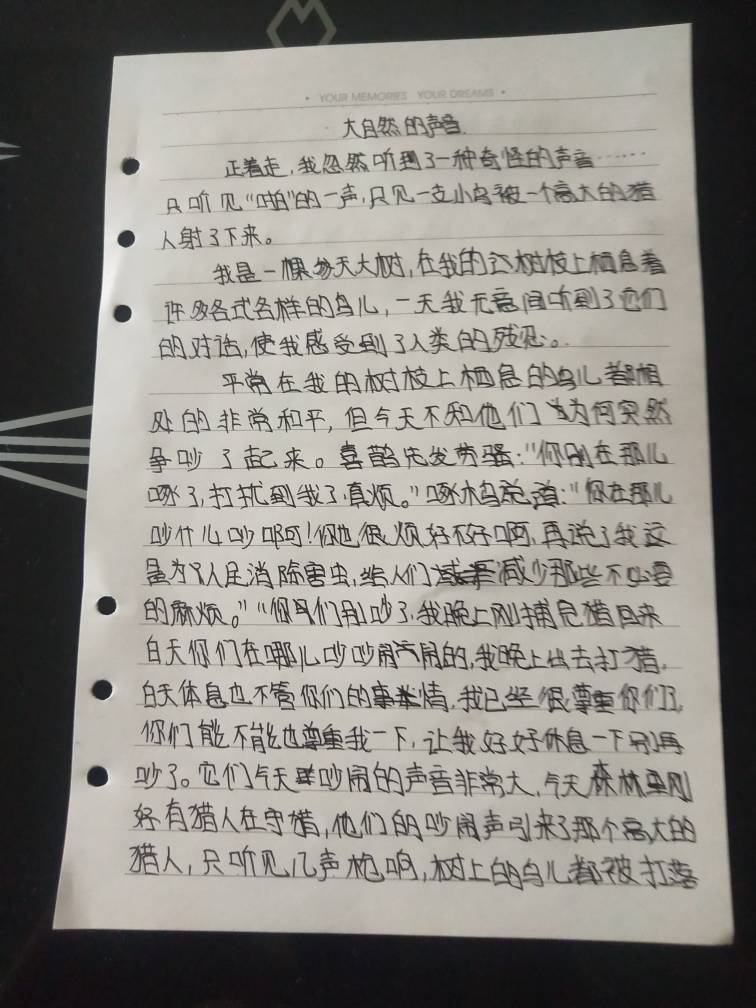 • YOUR MEMORIES YOUR DREAMS •
大自然的声音
正着走,我忽然听到了一种奇怪的声音……
只听见“啪”的一声,只见一支小鸟被一个高大的猎
人射了下来。
我是一棵参天大树,在我的这树枝上栖息着
许多各式各样的鸟儿,一天我无意间听到了它们
的对话,使我感受到了人类的残忍。
平常在我的树枝上栖息的鸟儿都相
处的非常和平,但今天不知他们为何突然
争吵了起来。喜鹊先发劳骚:“你别在那儿
啄了,打扰到我了,真烦。”啄木鸟说道:“你在那儿
吵什么吵啊!你也很烦好不好啊,再说了我这
是为人民消除害虫,给人们减少那些不必要
的麻烦。”“你们别吵了,我晚上刚捕完猎回来
白天你们在哪儿吵吵闹闹的,我晚上出去打猎,
白天休息也不管你们的事情,我已经很尊重你们了,
你们能不能也尊重我一下,让我好好休息一下别再
吵了。它们今天吵闹的声音非常大,今天森林里刚
好有猎人在守猎,他们的吵闹声引来了那个高大的
猎人,只听见几声枪响,树上的鸟儿都被打落